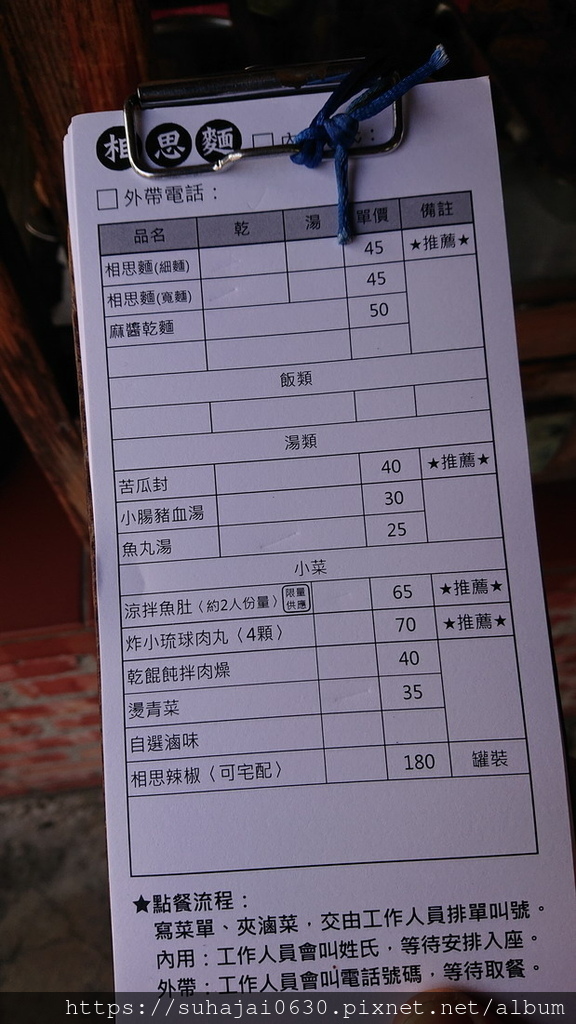 相思麵 □內
□外帶電話：
品名 乾 湯 單價 備註
相思麵(細麵) 45 ★推薦★
相思麵(寬麵) 45
麻醬乾麵 50
飯類
湯類
苦瓜封 40 ★推薦★
小腸豬血湯 30
魚丸湯 25
小菜
涼拌魚肚〈約2人份量〉 限量供應 65 ★推薦★
炸小琉球肉丸〈4顆〉 70 ★推薦★
乾餛飩拌肉燥 40
燙青菜 35
自選滷味
相思辣椒〈可宅配〉 180 罐裝
★點餐流程：
寫菜單、夾滷菜，交由工作人員排單叫號。
內用：工作人員會叫姓氏，等待安排入座。
外帶：工作人員會叫電話號碼，等待取餐。
https://suhajai0630.pixnet.net/album